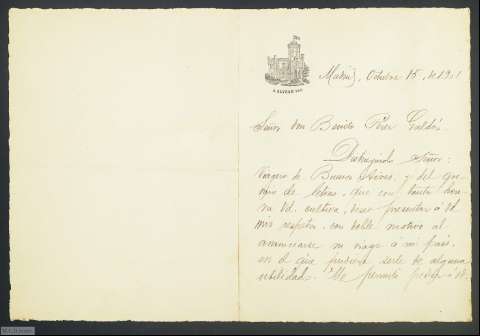 Madrid, Octubre 15, de 1901
Señor don Benito Pérez Galdós.
Distinguido Señor:
Viajero de Buenos Aires, y del gre-
mio de letras, que con tanta hon-
ra Vd. cultiva, deseo presentar á Vd.
mis respetos, con doble motivo al
anunciarse su viage á mi país,
en el que pudiera serle de alguna
utilidad. Me permito pedir á Vd.